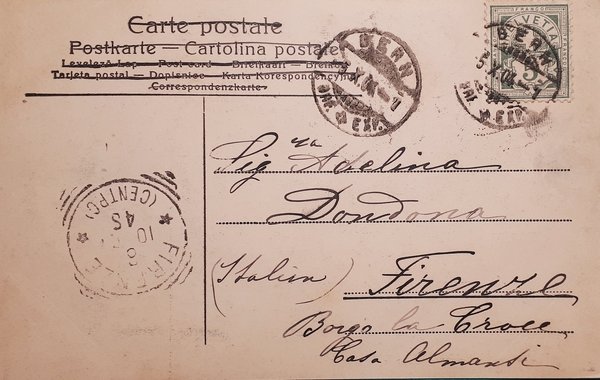 Carte postale
Postkarte — Cartolina postale
Levelező-Lap — Post card — Briefkaart — Brefkort
Tarjeta postal — Dopisnice — Karta Korespondencyjna
Correspondenzkarte
BERN
X.04
BRF. EXP.
FRANCO
HELVETIA
5
BERN
X.04
BRF. EXP.
Signa Adelina
Dondona
(Italien) Firenze
Borgo la Croce
Casa Almansi
FIRENZE
6
10
4S
(CENTRO)